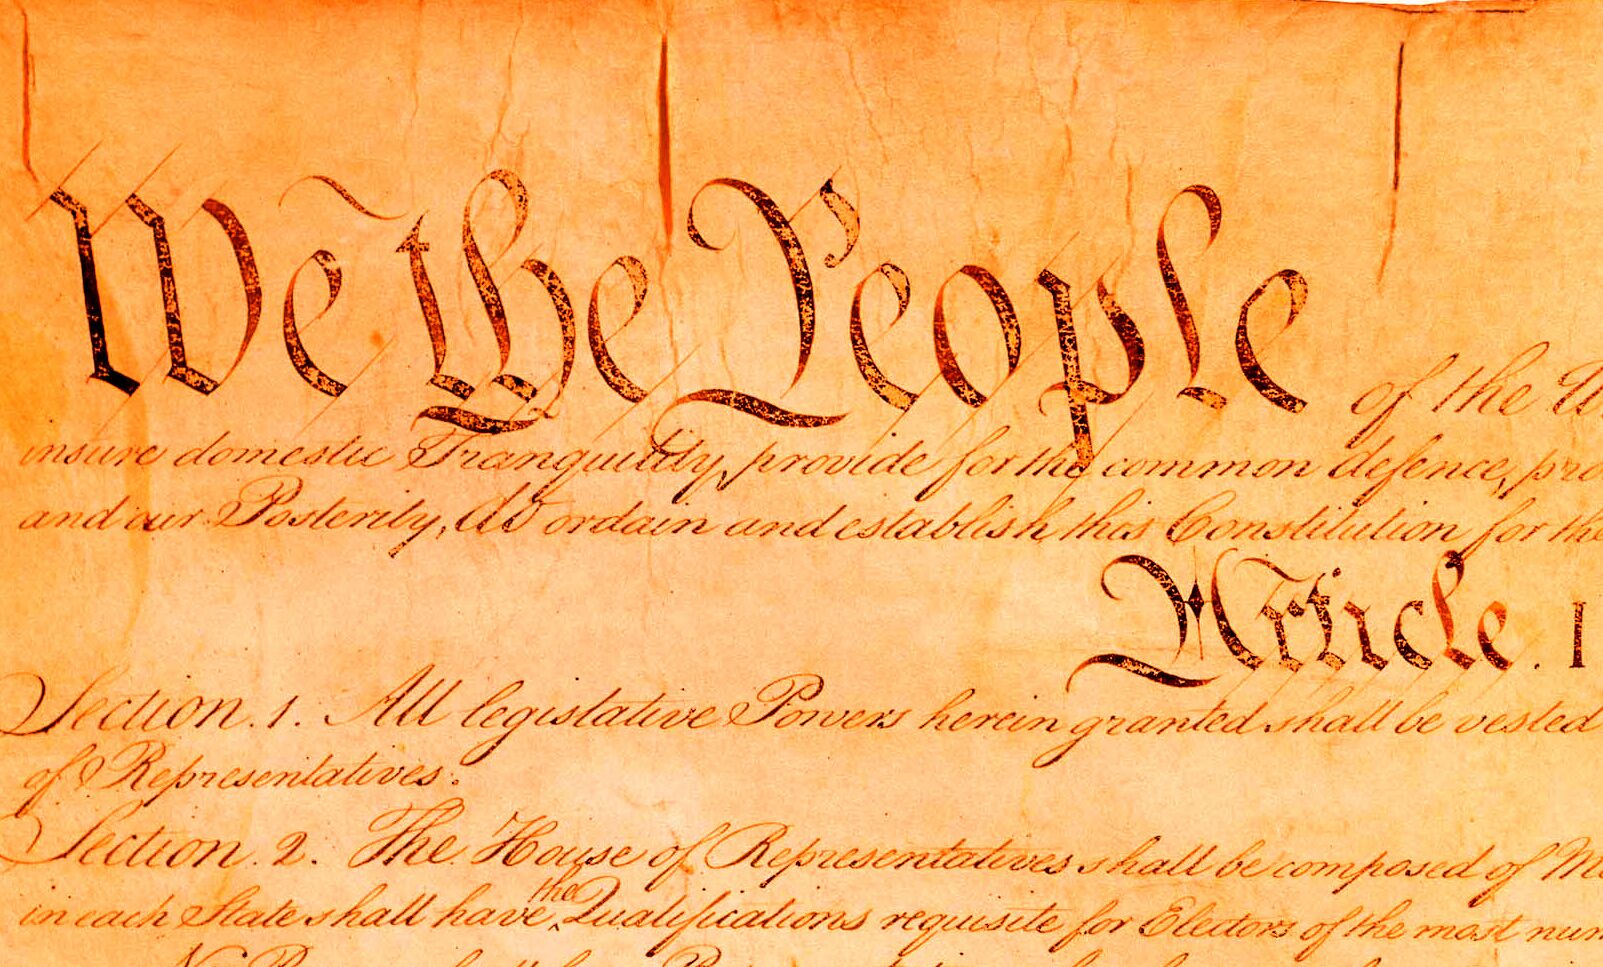 We the People of the U
insure domestic Tranquility, provide for the common defence, pro
and our Posterity, do ordain and establish this Constitution for the
Article. I
Section. 1. All legislative Powers herein granted shall be vested
of Representatives.
Section. 2. The House of Representatives shall be composed of Me
the
in each State shall have Qualifications requisite for Electors of the most num